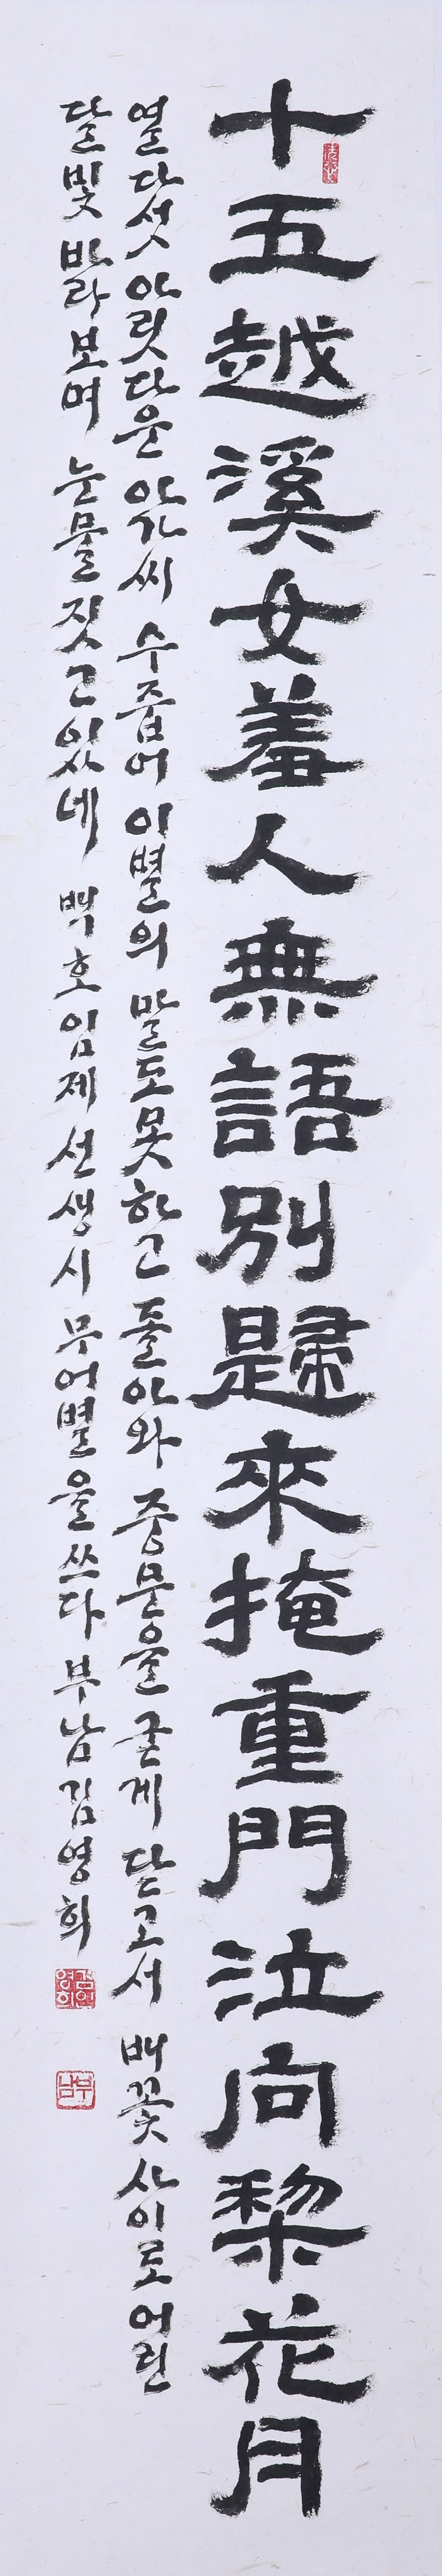 十五越溪女羞人無語別歸來掩重門泣向棃花月
열다섯 아릿다운 아가씨 수줍어 이별의 말도 못하고 돌아와 중문을 굳게 닫고서 배꽃 사이로 어린
달빛 바라보며 눈물 짓고 있네 백호 임제 선생 시 무어별을 쓰다 부남 김영희
부남